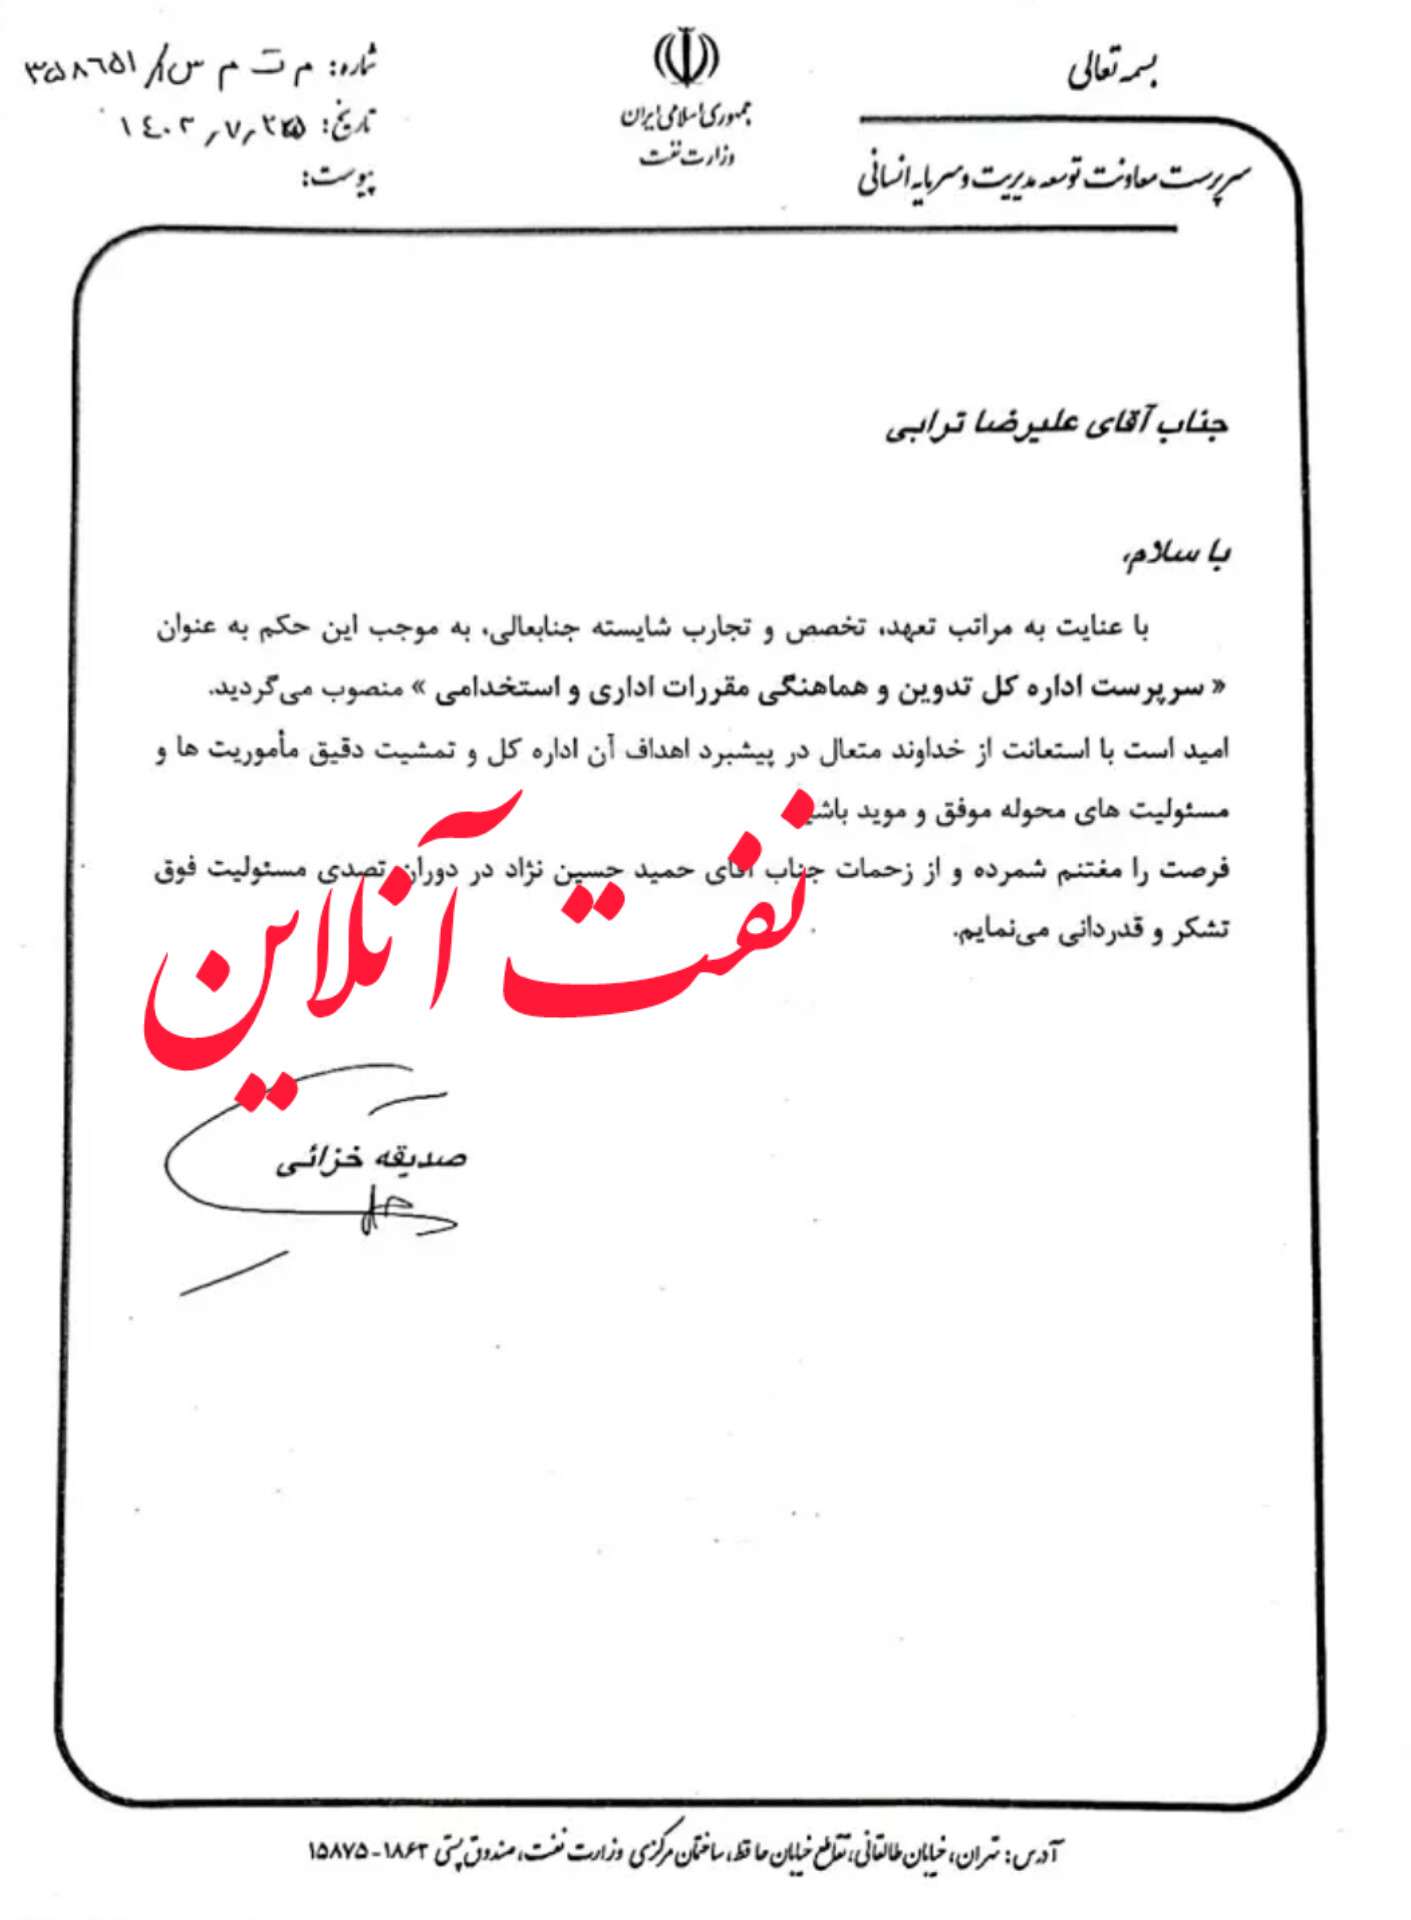 بسمه تعالی
سرپرست معاونت توسعه مدیریت و سرمایه انسانی
جمهوری اسلامی ایران
وزارت نفت
شماره: م ت م س/۳۵۸۶۵۱
تاریخ:
پیوست:
جناب آقای علیرضا ترابی
با سلام،
با عنایت به مراتب تعهد، تخصص و تجارب شایسته جنابعالی، به موجب این حکم به عنوان
« سرپرست اداره کل تدوین و هماهنگی مقررات اداری و استخدامی » منصوب می‌گردید.
امید است با استعانت از خداوند متعال در پیشبرد اهداف آن اداره کل و تمشیت دقیق مأموریت ها و
مسئولیت های محوله موفق و موید باشید
فرصت را مغتنم شمرده و از زحمات جناب آقای حمید حسین نژاد در دوران تصدی مسئولیت فوق
تشکر و قدردانی می‌نمایم.
نفت آنلاین
صدیقه خزائی
آدرس: تهران، خیابان طالقانی، تقاطع خیابان حافظ، ساختمان مرکزی وزارت نفت، صندوق پستی ۱۸۶۳-۱۵۸۷۵